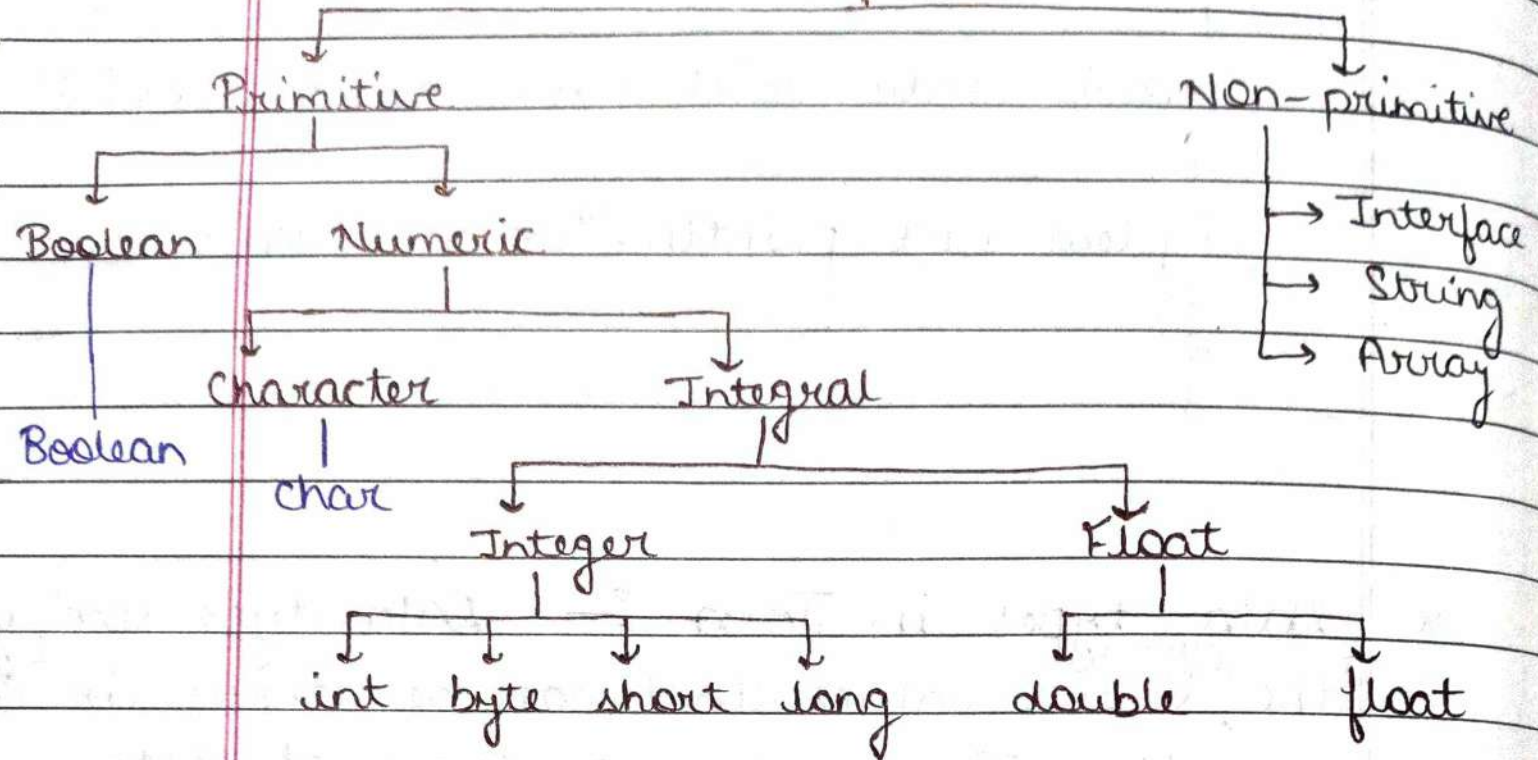 Primitive Non-primitive
Boolean Numeric Interface
String
Character Integral Array
Boolean
char
Integer Float
int byte short long double float